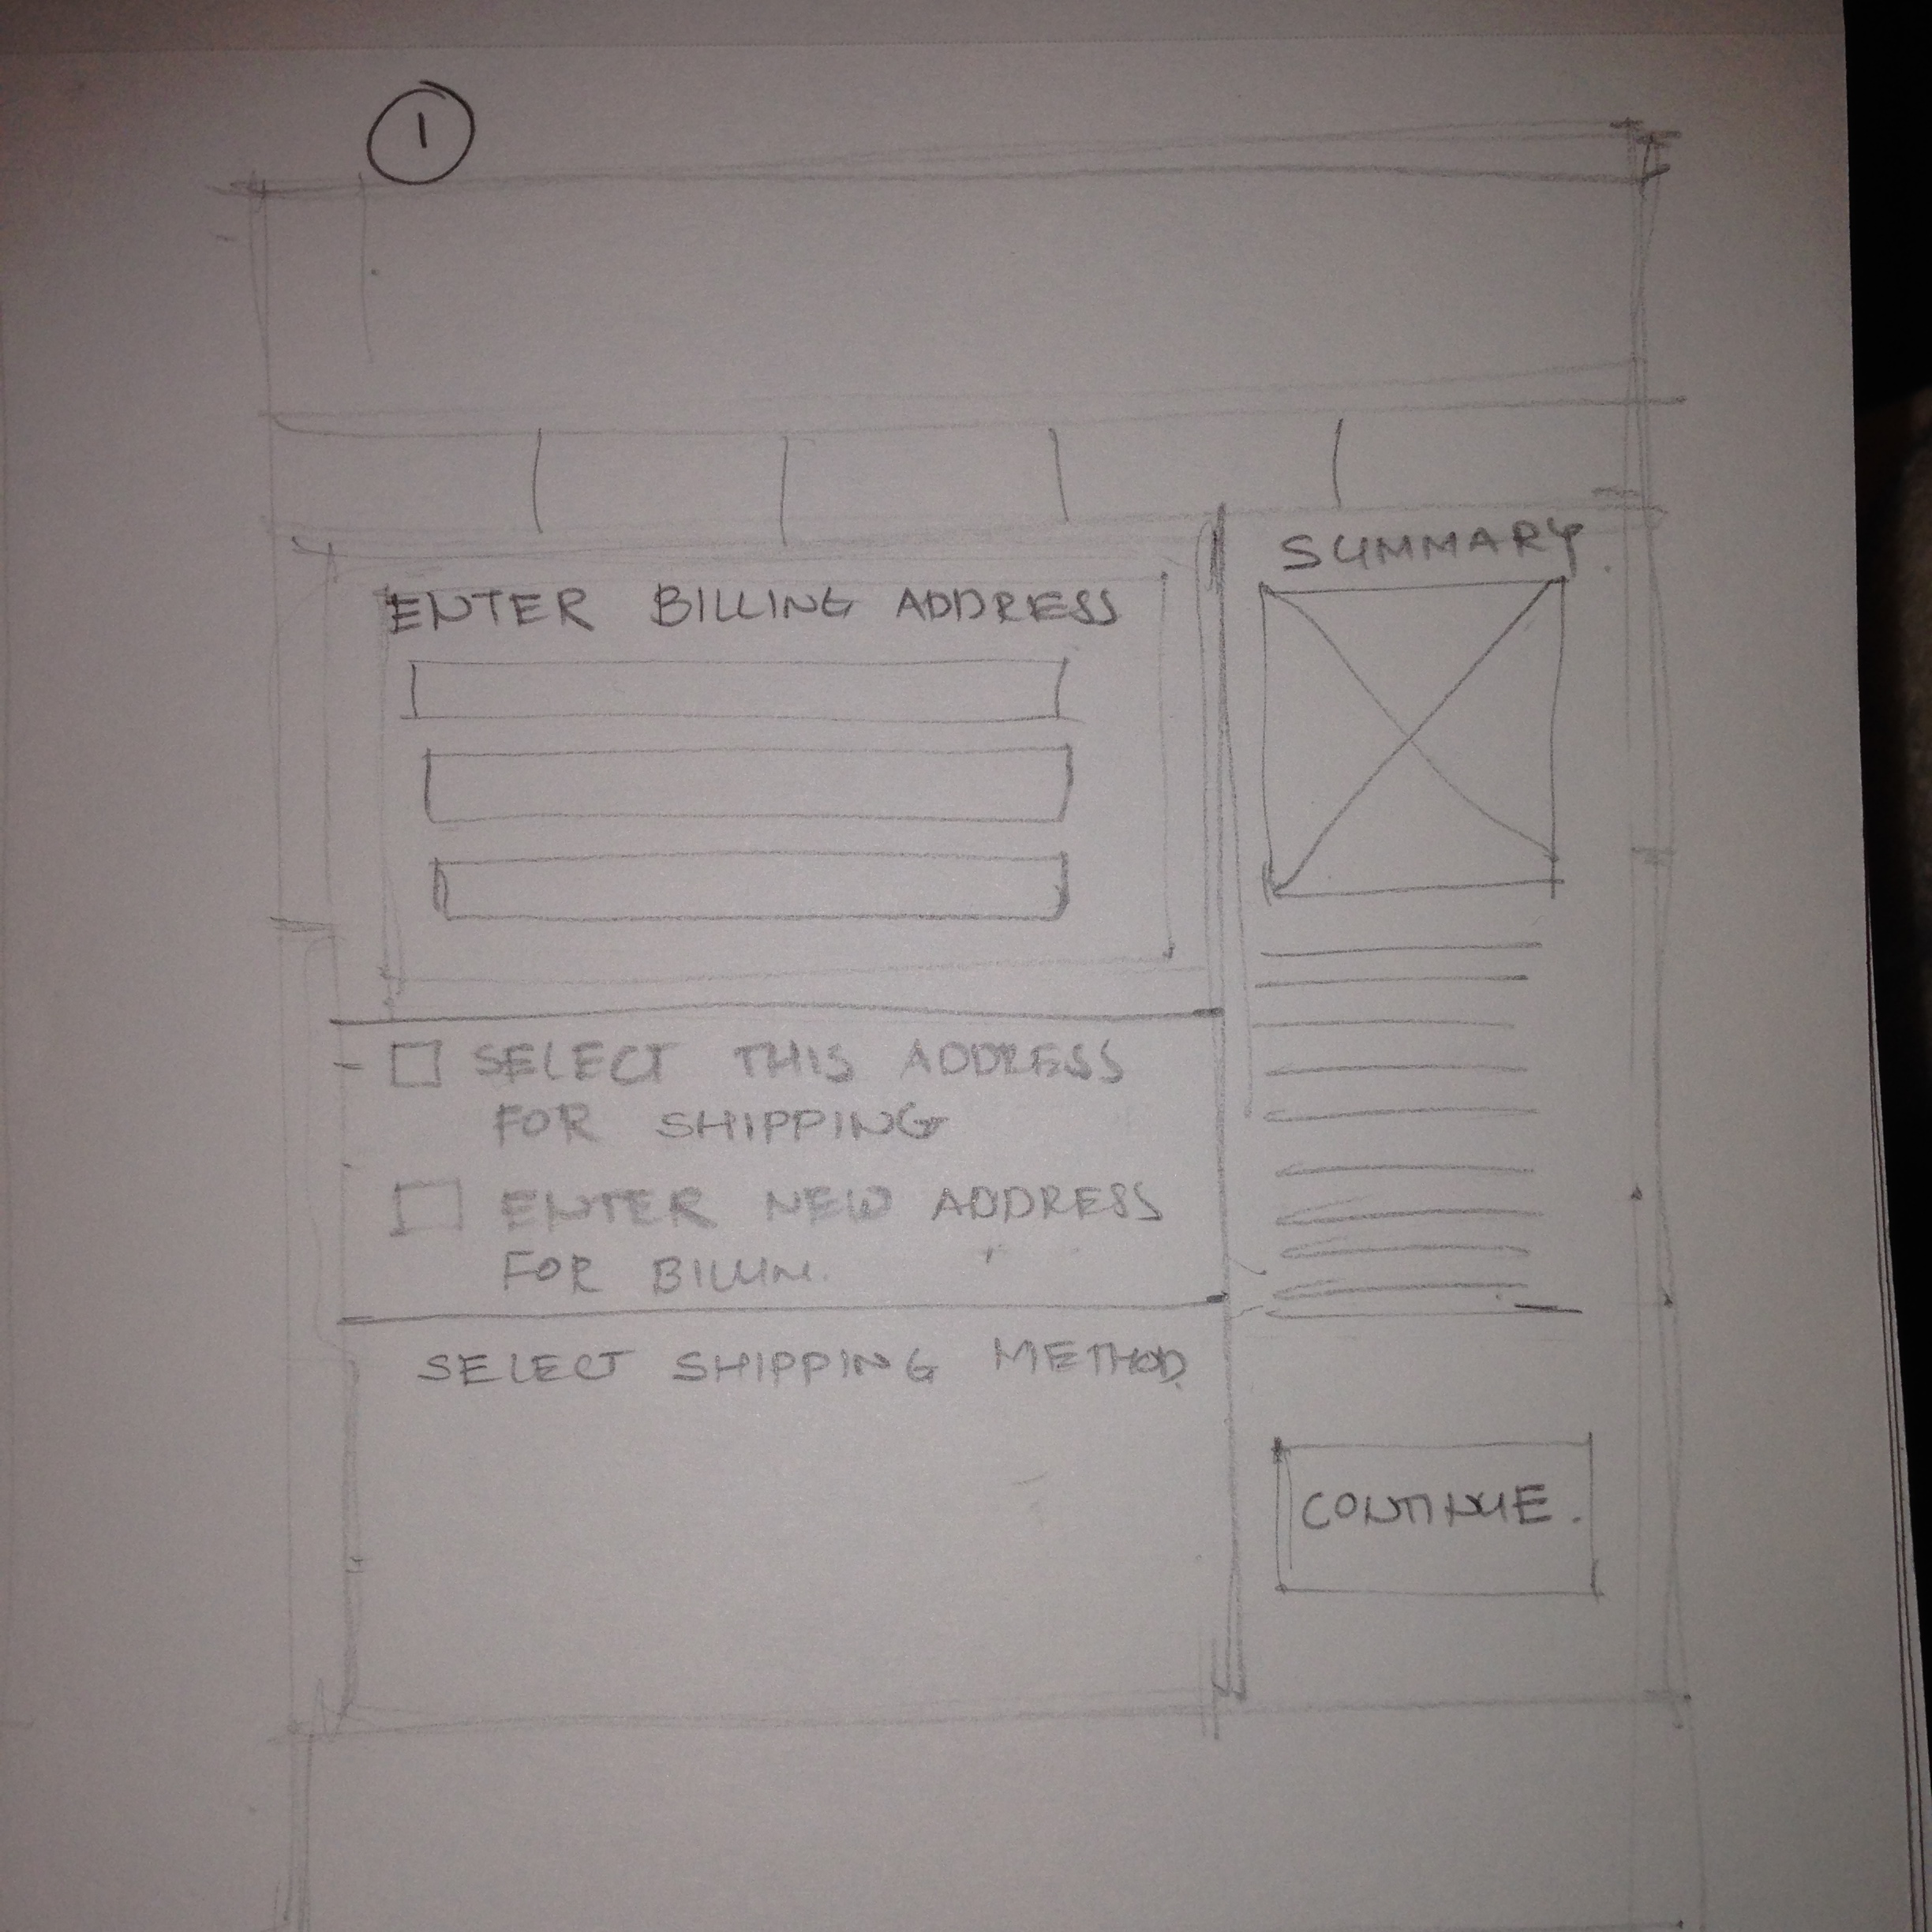 1
ENTER BILLING ADDRESS
SELECT THIS ADDRESS
FOR SHIPPING
ENTER NEW ADDRESS
FOR BILLIN.
SELECT SHIPPING METHOD
SUMMARY
CONTINUE.